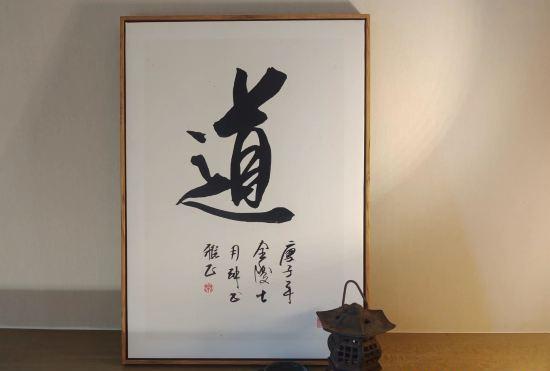 道
庚子年
金陵七
月坤书
雅正